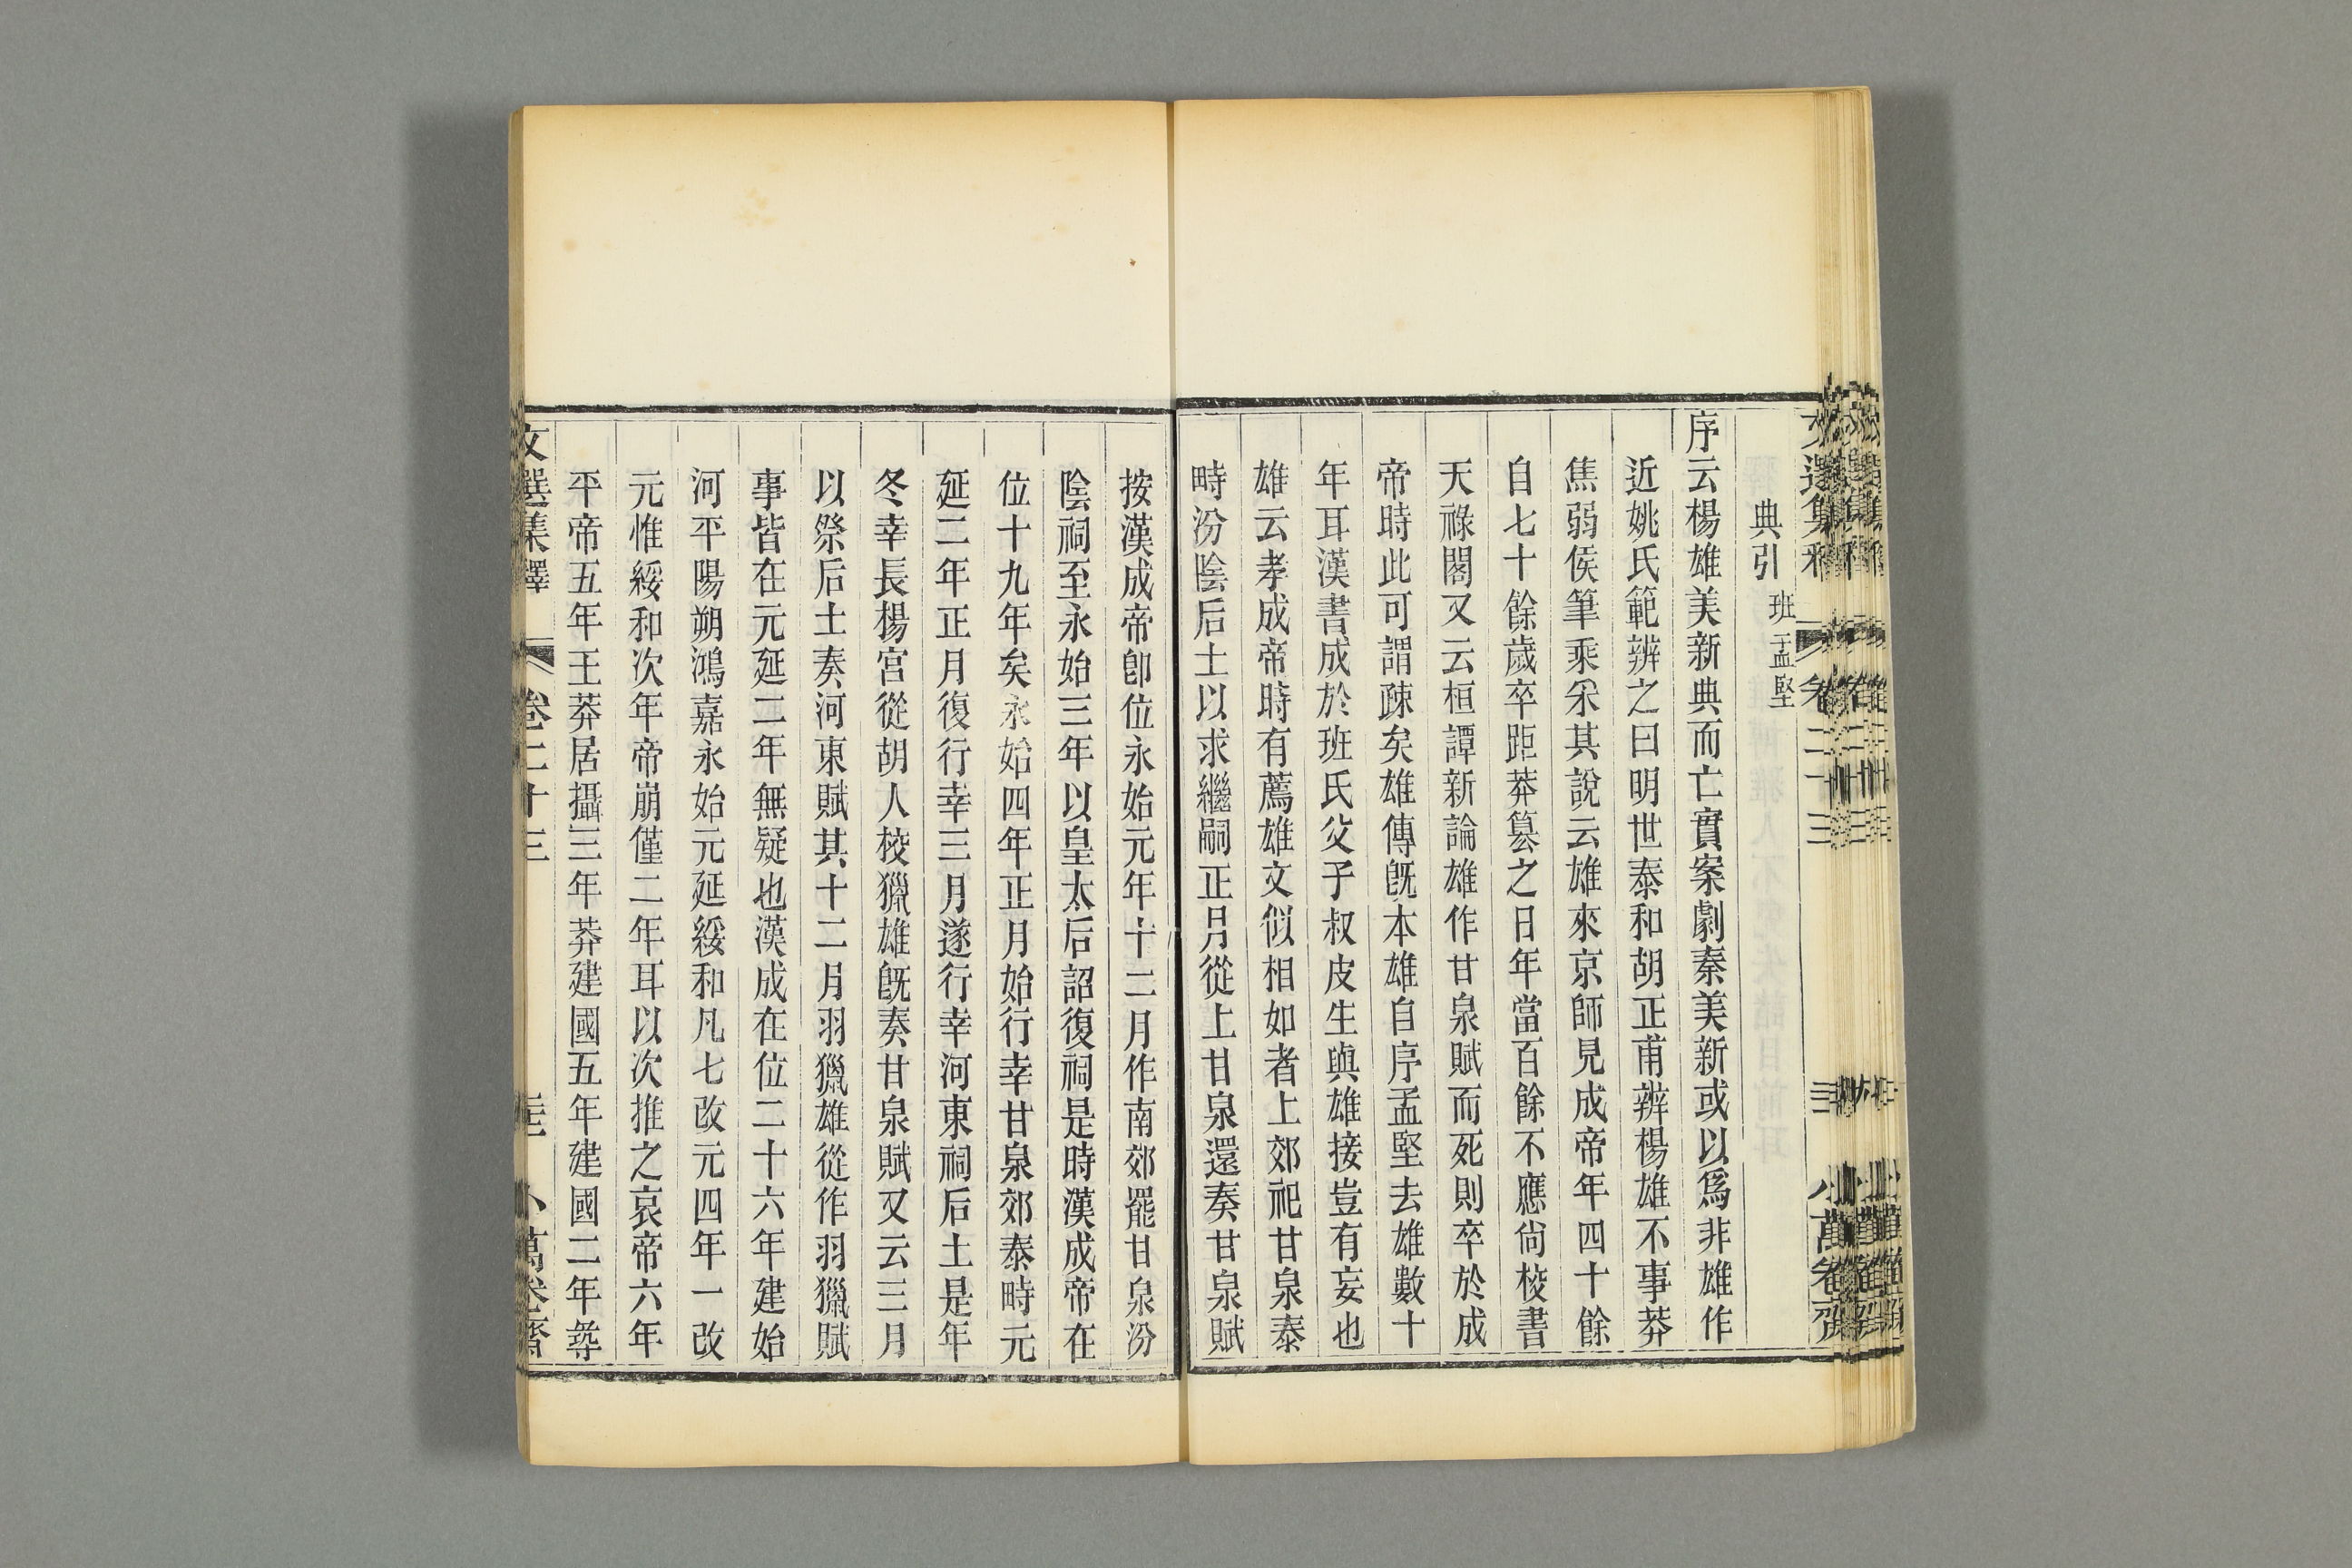 典引 班孟堅
序云楊雄美新典而亡實案劇秦美新或以爲非雄作
近姚氏範辨之曰明世泰和胡正甫辨楊雄不事莽
焦弱侯筆乘采其說云雄來京師見成帝年四十餘
自七十餘歲卒距莽篡之日年當百餘不應尙校書
天祿閣又云桓譚新論雄作甘泉賦而死則卒於成
帝時此可謂疎矣雄傳旣本雄自序孟堅去雄數十
年耳漢書成於班氏父子叔皮生與雄接豈有妄也
雄云孝成帝時有薦雄文似相如者上郊祀甘泉泰
畤汾陰后土以求繼嗣正月從上甘泉還奏甘泉賦
按漢成帝卽位永始元年十二月作南郊罷甘泉汾
陰祠至永始三年以皇太后詔復祠是時漢成帝在
位十九年矣永始四年正月始行幸甘泉郊泰畤元
延二年正月復行幸三月遂行幸河東祠后土是年
冬幸長楊宮從胡人校獵雄旣奏甘泉賦又云三月
以祭后土奏河東賦其十二月羽獵雄從作羽獵賦
事皆在元延二年無疑也漢成在位二十六年建始
河平陽朔鴻嘉永始元延綏和凡七改元四年一改
元惟綏和次年帝崩僅二年耳以次推之哀帝六年
平帝五年王莽居攝三年莽建國五年建國二年尋
文選集釋 卷二十三 小萬卷齋